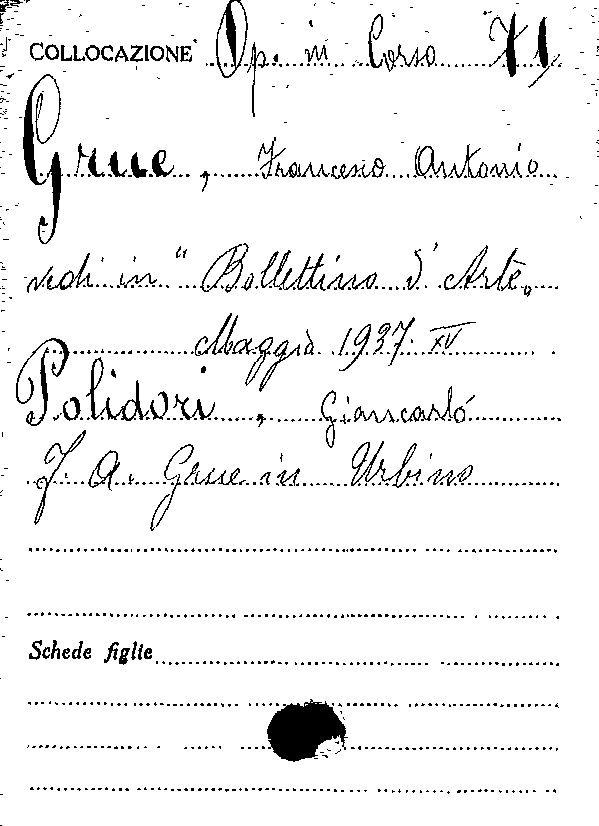 COLLOCAZIONE Op. in Corso 71
Grue, Francesco Antonio
vedi in "Bollettino d'Arte„
Maggio 1937. XV
Polidori, Giancarlo
F. A. Grue in Urbino
Schede figlie